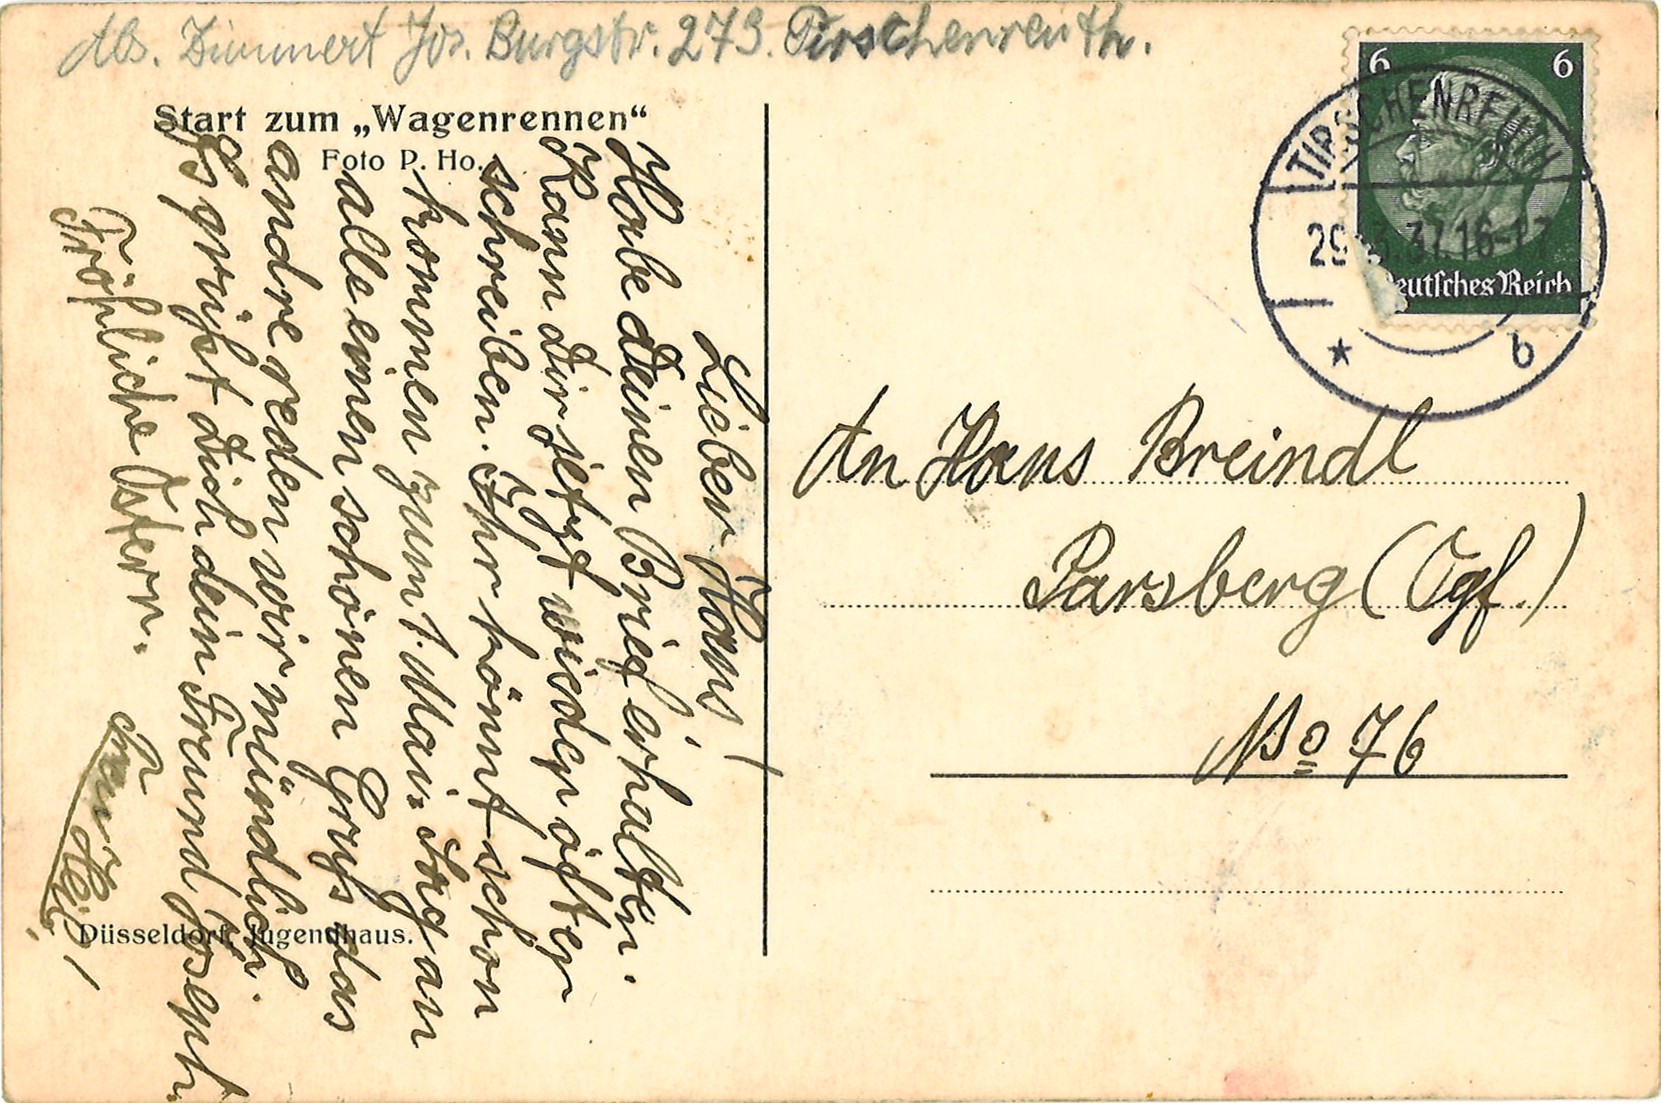 Abs. Zimmert Jos. Burgstr. 273. Tirschenreuth.
Start zum „Wagenrennen“
Foto P. Ho.
Lieber Hans!
Habe deinen Brief erhalten.
Kann dir jetzt wieder öfter
schreiben. Ihr könnt schon
kommen zum 1. Mai. Sag an
alle einen schönen Gruß das
andre reden wir mündlich.
Es grüßt Dich dein Freund Joseph
Fröhliche Ostern.
Treu Heil!
Düsseldorf, Jugendhaus.
6 6
Deutsches Reich
TIRSCHENREUTH
29.3.37.16-17
* b
An Hans Breindl
Parsberg (Opf.)
No 76